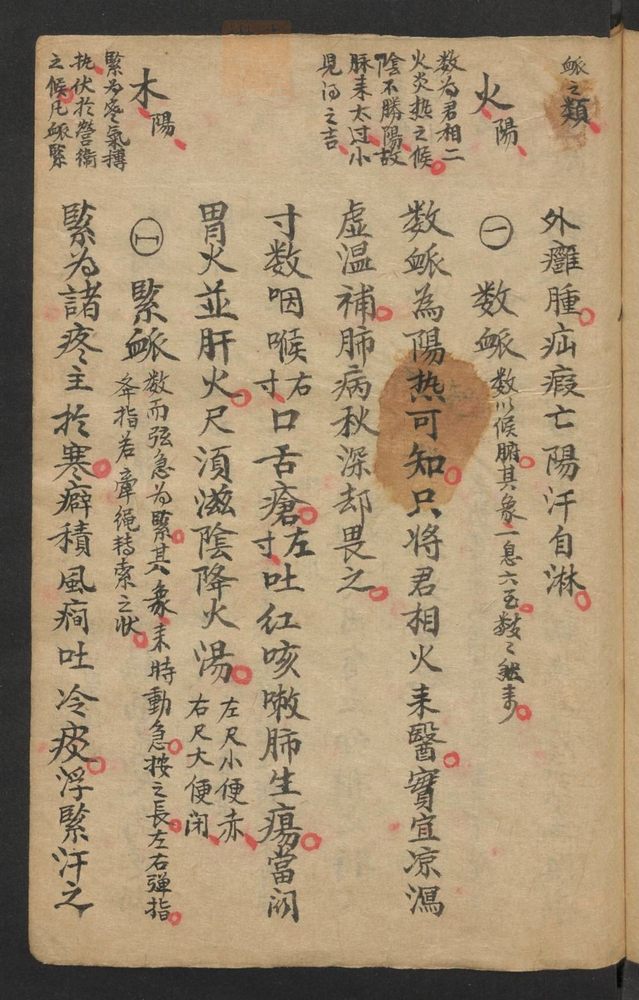 脈之類
外癰腫疝瘕亡陽汗自淋
火陽
数為君相二
火炎热之候
陰不勝陽故
脉来太过小
見 之吉
㊀ 数脈 数以候腑其象一息六至数〻然来
数脈為陽热可知只将君相火来醫實宜凉瀉
虛温補肺病秋深却畏之
寸数咽喉右寸口舌瘡左寸吐红咳嗽肺生瘍當関
胃火並肝火尺湏滋陰降火湯左尺小便赤
右尺大便闭
木陽
緊為寒氣摶
热伏於營衛
之候凡脈緊
㊁ 緊脈 数而弦急為緊其象来時動急按之長左右彈指
牽繩轉索之状
緊為諸疼主於寒癖積風癎吐冷痰浮緊汗之